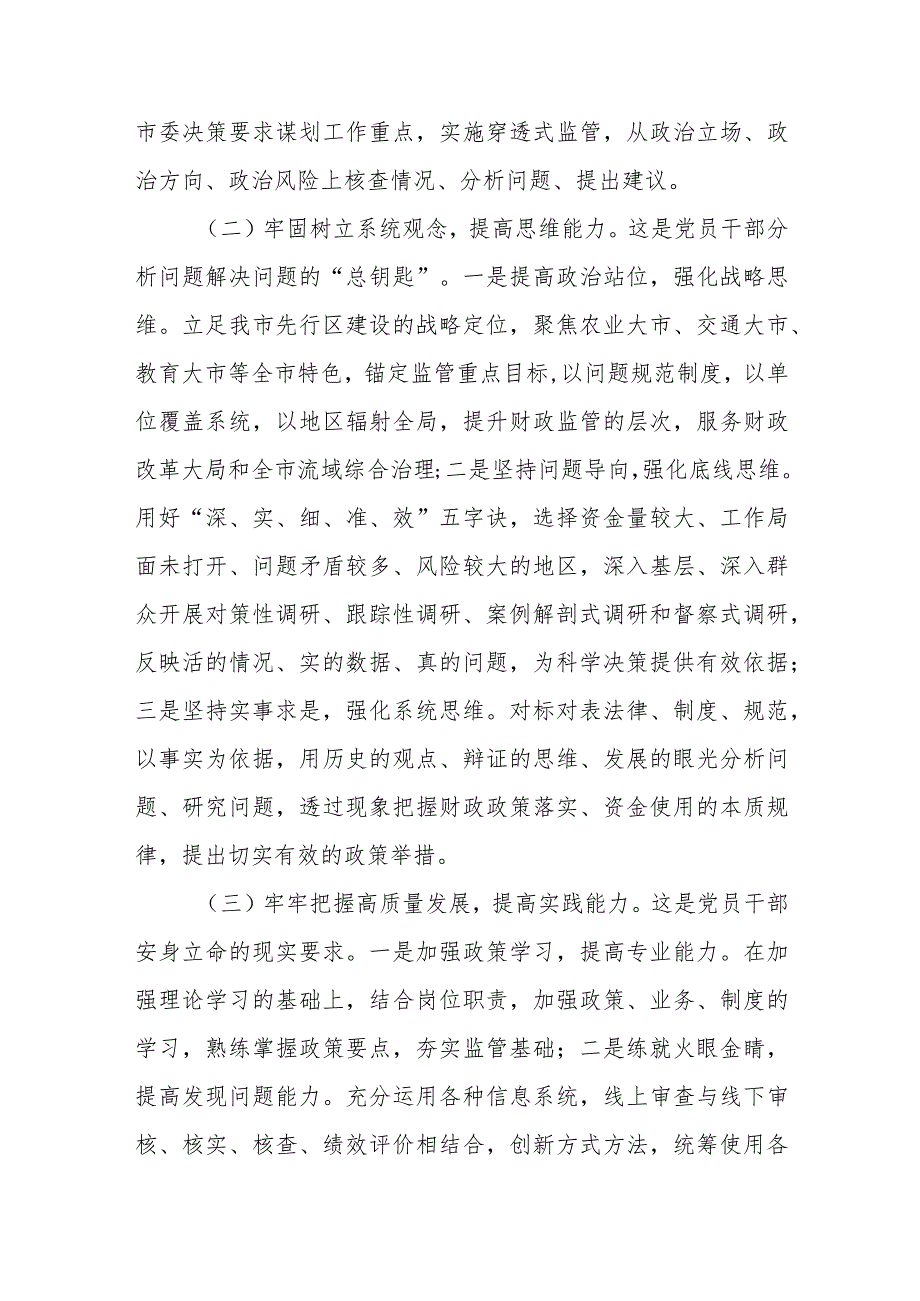 市委决策要求谋划工作重点，实施穿透式监管，从政治立场、政
治方向、政治风险上核查情况、分析问题、提出建议。
（二）牢固树立系统观念，提高思维能力。这是党员干部分
析问题解决问题的“总钥匙”。一是提高政治站位，强化战略思
维。立足我市先行区建设的战略定位，聚焦农业大市、交通大市、
教育大市等全市特色，锚定监管重点目标,以问题规范制度，以单
位覆盖系统，以地区辐射全局，提升财政监管的层次，服务财政
改革大局和全市流域综合治理;二是坚持问题导向,强化底线思维。
用好“深、实、细、准、效”五字诀，选择资金量较大、工作局
面未打开、问题矛盾较多、风险较大的地区，深入基层、深入群
众开展对策性调研、跟踪性调研、案例解剖式调研和督察式调研，
反映活的情况、实的数据、真的问题，为科学决策提供有效依据；
三是坚持实事求是，强化系统思维。对标对表法律、制度、规范，
以事实为依据，用历史的观点、辩证的思维、发展的眼光分析问
题、研究问题，透过现象把握财政政策落实、资金使用的本质规
律，提出切实有效的政策举措。
（三）牢牢把握高质量发展，提高实践能力。这是党员干部
安身立命的现实要求。一是加强政策学习，提高专业能力。在加
强理论学习的基础上，结合岗位职责，加强政策、业务、制度的
学习，熟练掌握政策要点，夯实监管基础；二是练就火眼金睛，
提高发现问题能力。充分运用各种信息系统，线上审查与线下审
核、核实、核查、绩效评价相结合，创新方式方法，统筹使用各